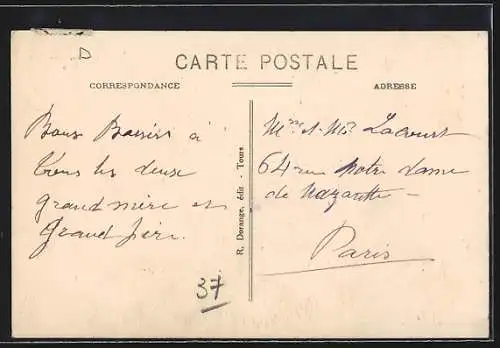 D
CARTE POSTALE
CORRESPONDANCE
ADRESSE
Bons Baisers à
tous les deux
grand mère et
Grand père.
37
R. Dorange, édit - Tours
Mme & Mr Lacourt
64 rue Notre dame
de Nazareth -
Paris